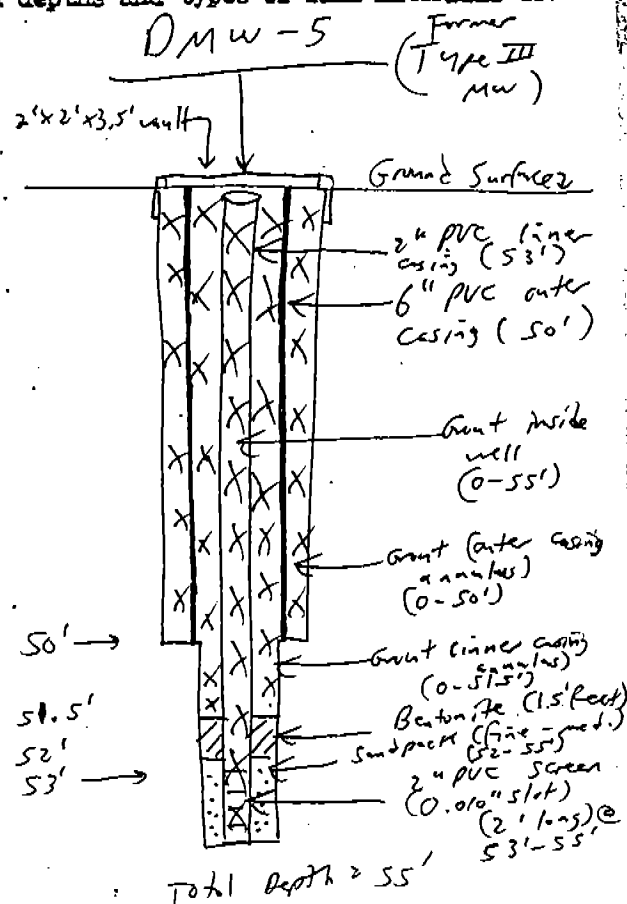 depths and types of
DMW-5
(Former
Type III
MW)
2'x2'x3.5' vault
Ground Surface
2" PVC inner
casing (53')
6" PVC outer
casing (50')
Grout inside
well
(0-55')
Grout (outer casing
annulus)
(0-50')
50'
Grout (inner casing
annulus)
(0-51.5')
51.5'
Bentonite (1.5 feet)
52'
Sandpack (fine-med.)
(52-55')
53'
2" PVC screen
(0.010" slot)
(2' long) @
53'-55'
Total Depth = 55'